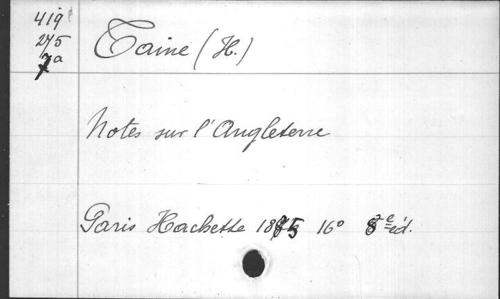 419
275
7a
Taine (H.)
Notes sur l'Angleterre
Paris Hachette 1873 16° 8e éd.